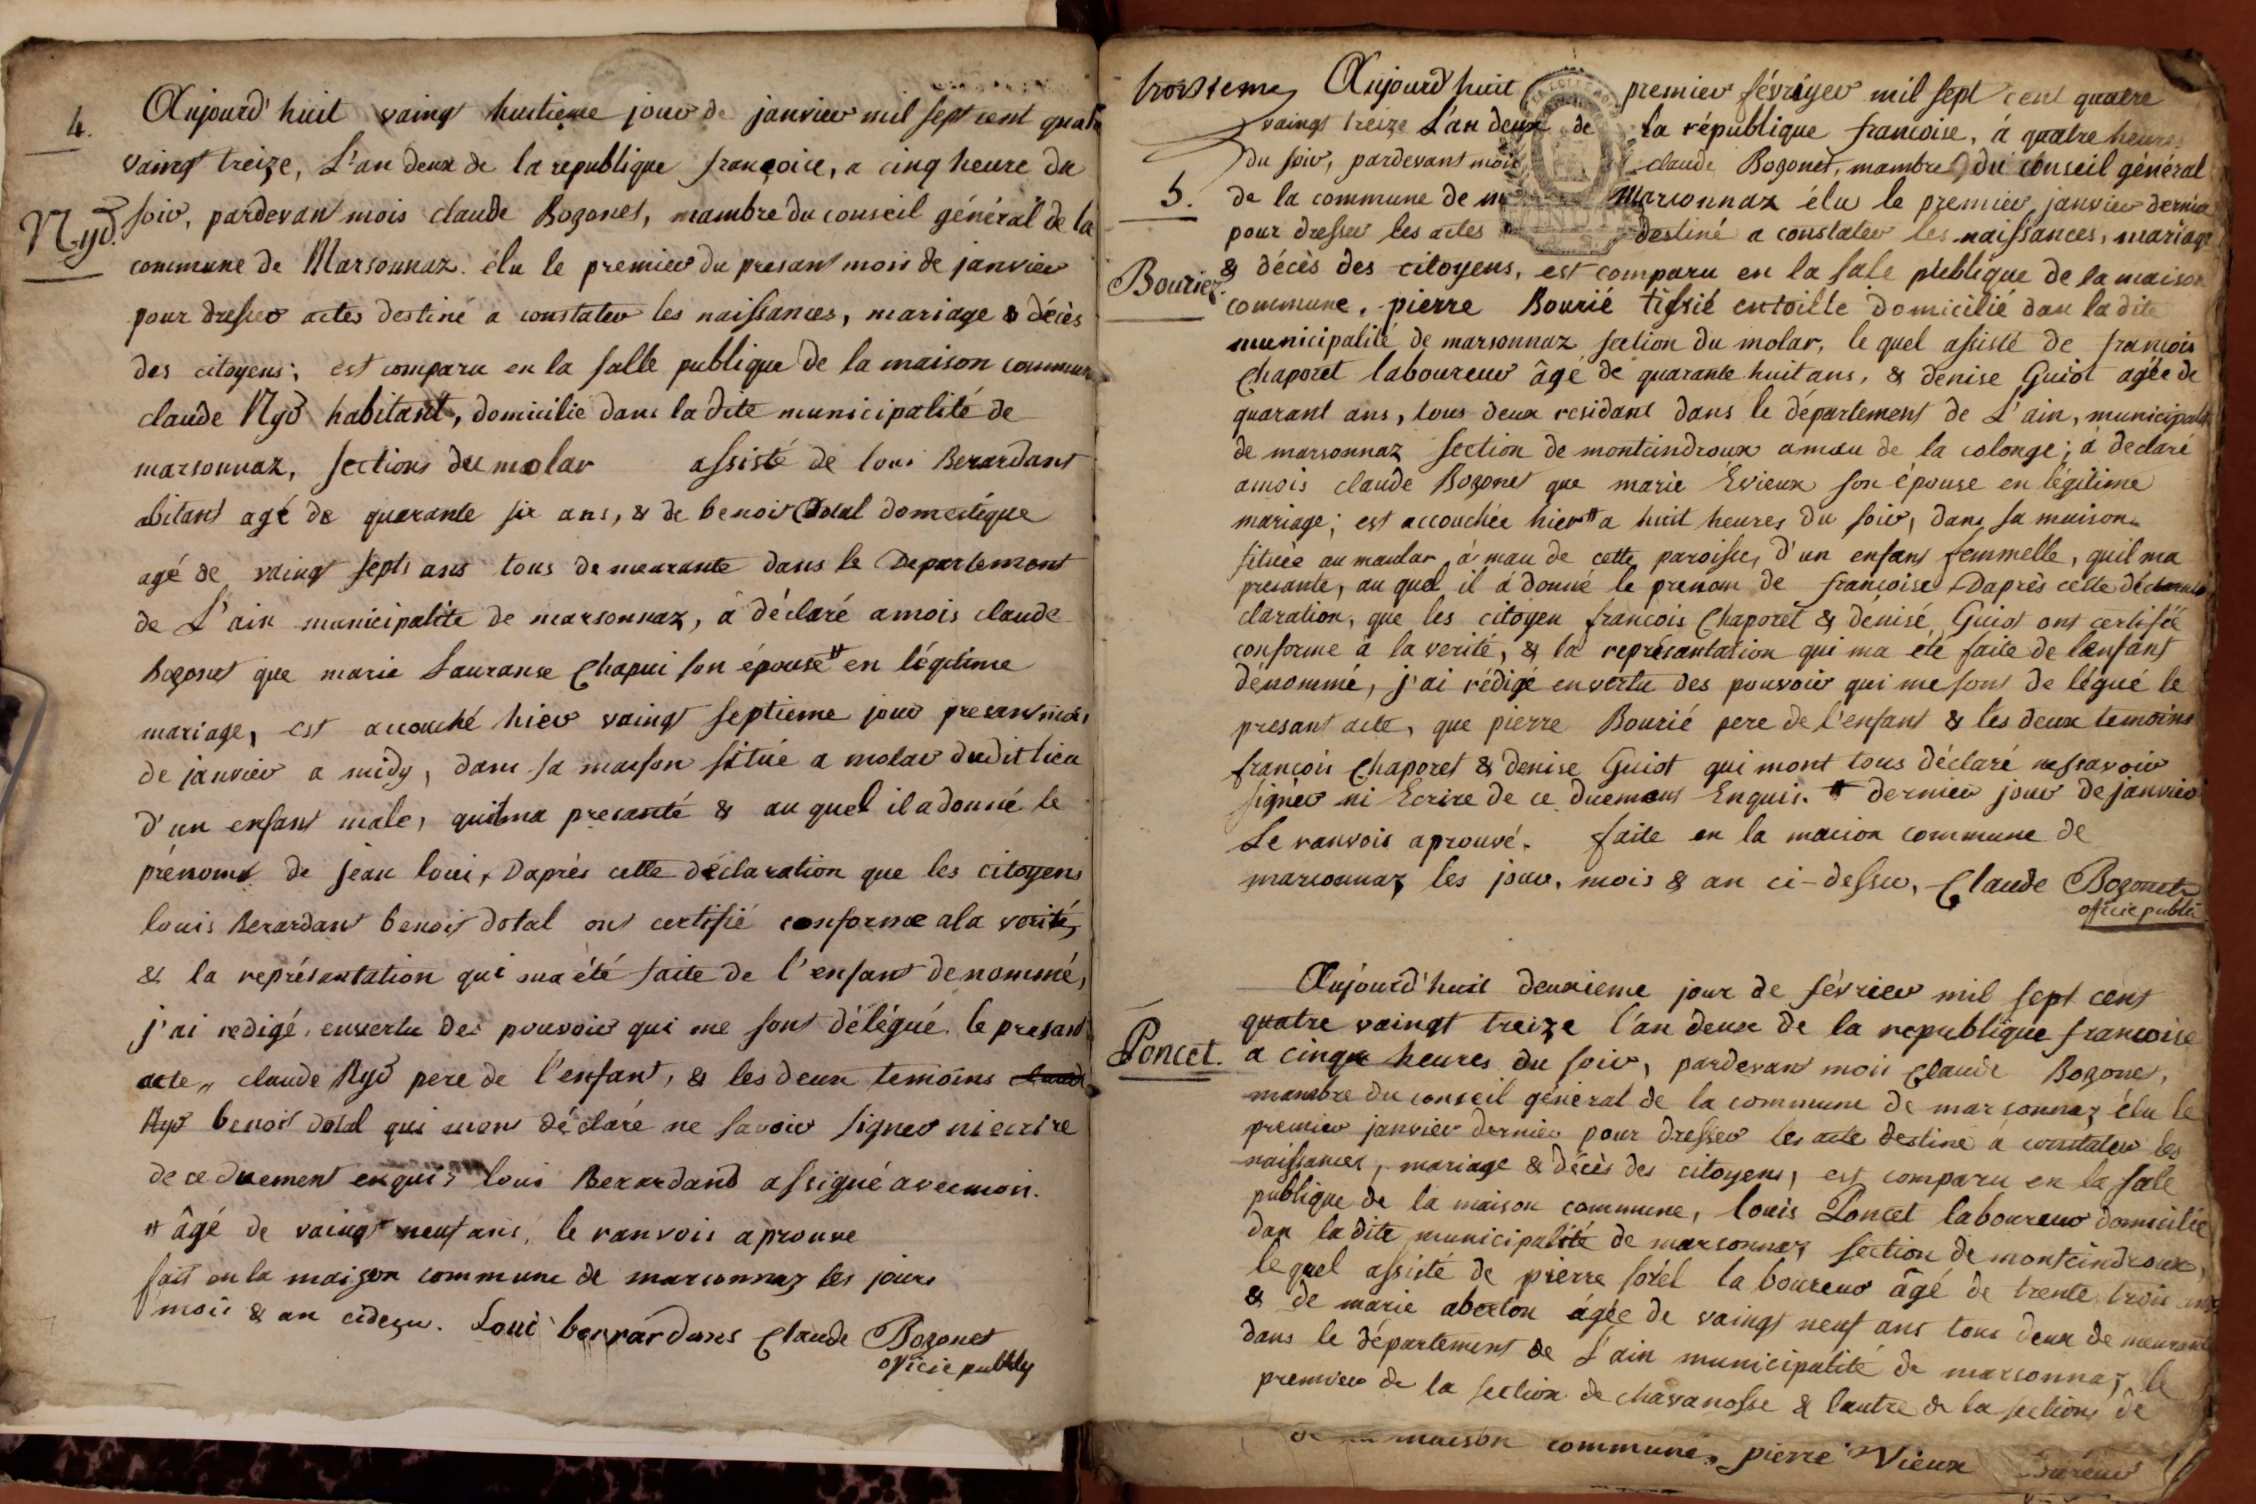 4.
Aujourd'huit vaingt huitieme jour de janvier mil sept cent quatre
vaingt treize, L'an deux de la republique françoice, a cinq heure du
Nyd. soir, pardevant mois claude Bozonet, mambre du conseil général de la
commune de Marsonnaz. élu le premier du presant mois de janvier
pour dresser actes destiné a constater les naissances, mariage & décès
des citoyens; est comparu en la salle publique de la maison commune
claude Nyd habitant, domicilie dans la dite municipalité de
marsonnaz, sections du molar assisté de loui Berardant
abitant agé de quarante six ans, & de benoit dotal domestique
agé de vaingt septs ans tous demeurante dans le Departement
de L'ain municipalite de marsonnaz, a déclaré amois claude
Bozonet que marie Lauranse Chapui son épouse # en légitime
mariage, est accouché hier vaingt septieme jour presant mois
de janvier a midy, dans sa maison situé a molar dudit lieu
d'un enfant male, quilma presanté & au quel il a donné le
prénoms de jean loui, Daprès cette déclaration que les citoyens
louis Berardant benoit dotal ont certifié conforme ala vérité,
& la représantation qui ma été faite de l'enfant denommé,
j'ai redigé envertu des pouvoir qui me sont délégué le presant
acte,, claude Nyd pere de l'enfant, & les deux temoins claude
Nyd benoit dotal qui mont déclaré ne savoir signer ni ecrire
de ce duement enquis, loui Berardand a signé avec moi.
# âgé de vaingt neuf ans, le ranvois aprouve
fait en la maizon commune de marconnaz les jours
mois & an cideçu. Loui berrardans Claude Bozonet
oficie publiq
troisieme
Aujourd'huit premier févriyer mil sept cent quatre
vaingt treize L'an deux de la république francoise, á quatre heures
du soir, pardevant mois claude Bozonet, mambre du conseil général
5. de la commune de Marconnaz élu le premier janvier dernier
pour dresser les actes destiné a constater les naissances, mariage
Bouriez. & décès des citoyens, est comparu en la sale publique de la maison
commune, pierre Bourié tissié entoille domicilié dan la dite
municipalité de marsonnaz section du molar, le quel assisté de francois
Chaporet laboureur âgé de quarante huit ans, & denise Guiot agée de
quarant ans, tous deux residant dans le département de L'ain, municipalité
de marsonnaz section de montcindroux amau de la colonge; a déclaré
amois claude Bozonet que marie Evieux son épouse en légitime
mariage; est accouchée hier # a huit heures du soir, dans sa maison
située au maular á mau de cette paroisse, d'un enfant femmelle, quil ma
presante, au quel il á donné le prenom de francoise Daprès cette dé
claration, que les citoyen francois Chaporet & dénisé Guiot ont certifié
conforme à la verité, & la représantation qui ma été faite de lenfant
dénommé, j'ai rédigé envertu des pouvoir qui me sont de légué le
presant acte, que pierre Bourié pere de l'enfant & les deux temoins
françois Chaporet & denise Guiot qui mont tous déclaré ne ssavoir
signer ni Ecrire de ce duemant Enquis. # dernier jour de janvier
Le ranvois aprouvé. faite en la macion commune de
marconnaz les jour, mois & an ci-dessu, Claude Bozonet
oficie publi
Aujourd'huit deuxieme jour de février mil sept cent
quatre vaingt treize l'an deux de la republique francoise
Poncet. a cinque heures du soir, pardevant mois Claude Bozonet,
mambre du conseil général de la commune de marsonnaz élu le
premier janvier dernier pour dresser les acte destine á constater les
naissances, mariage & décès des citoyens, est comparu en la sale
publique de la maison commune, louis Poncet laboureur domicilie
dan la dite municipalité de marsonnaz section de montcindroux,
le quel assisté de pierre forêl la boureur âgé de trente trois ans
& de marie aberton ágée de vaingt neuf ans tous deux de meurant
dans le département de L'ain municipalité de marsonnaz, le
premier de la section de chavanosse & lautre de la sections de
maison commune, pierre Vieux